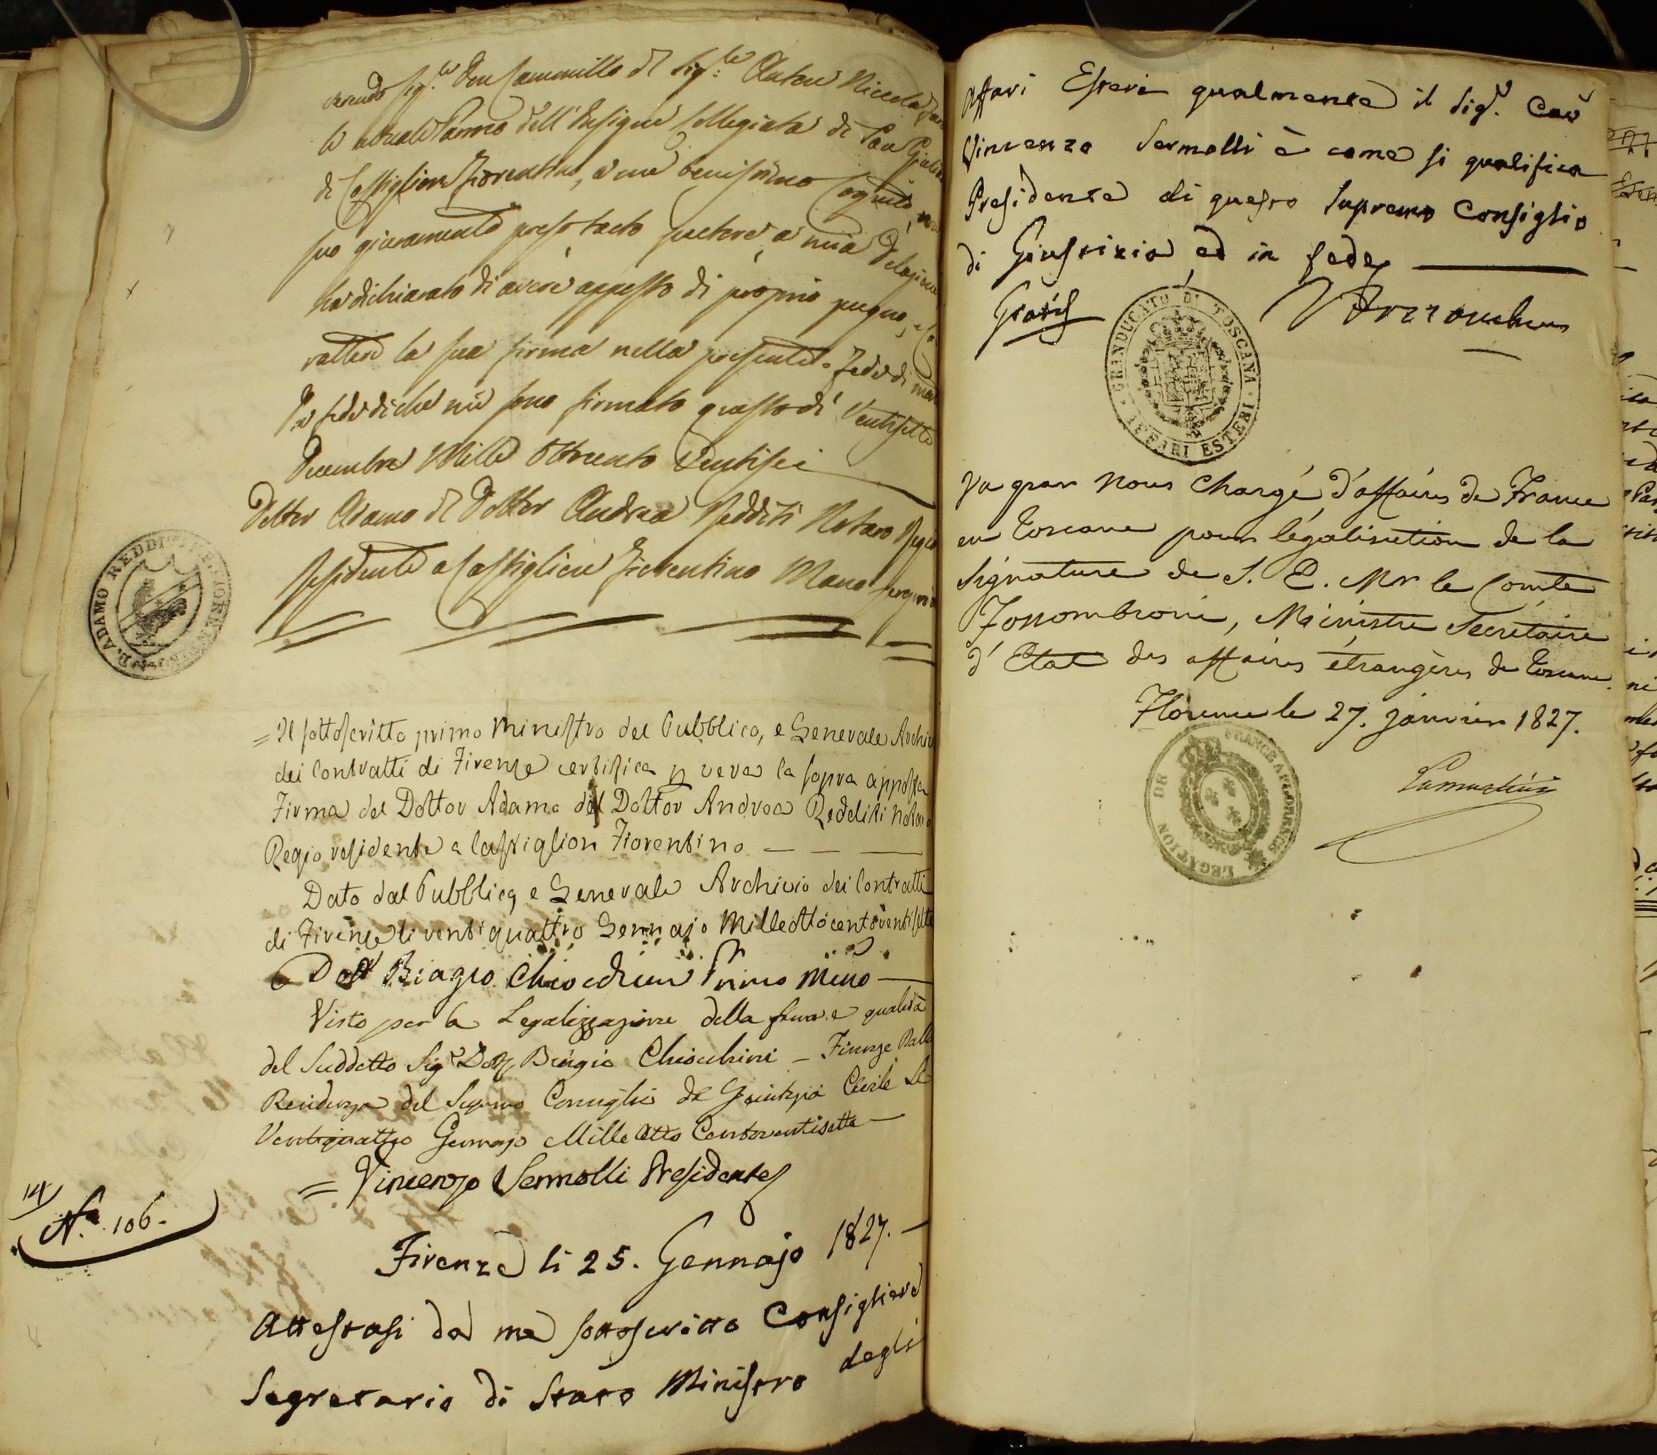 Sig.r Don Cammillo del Sig.re Antonio Niccola
attuale dell'Insigne Collegiata di San
di Castiglion Fiorentino, a me benissimo cognito,
suo giuramento prestato a mia delazione
ha dichiarato di avere apposto di proprio pugno, e
rattere la sua firma nella presente fede di
In fede di che mi sono firmato questo dì Ventisette
Decembre Mille Ottocento Ventisei
Dottor Adamo del Dottor Andrea Redditi Notaro Regio
residente a Castiglion Fiorentino Mano propria
D. ADAMO REDDITI
= Il sottoscritto primo Ministro del Pubblico, e Generale Archiv
dei Contratti di Firenze certifica p vera la sopra apposta
Firma del Dottor Adamo del Dottor Andrea Redditi Notaro
Regio residente a Castiglion Fiorentino
Dato dal Pubblico, e Generale Archivio dei Contratti
di Firenze li ventiquattro Gennajo Milleottocentoventisette
Dott Biagio Chiocchini Primo Min.o
Visto per la Legalizzazione della firma e qualità
del Suddetto Sig.r Dott Biagio Chiocchini - Firenze Dalla
Residenza del Supremo Consiglio di Giustizia Civile Li
Ventiquattro Gennajo Mille Otto Centoventisette
= Vincenzo Sermolli Presidente
14
N.o 106.
Firenze li 25. Gennajo 1827.
Attestasi da me sottoscritto Consigliere
Segretario di Stato Ministro degli
Affari Esteri qualmente il Sig.r Cav
Vincenzo Sermolli è come si qualifica
Presidente di questo Supremo Consiglio
di Giustizia ed in fede
Gratis
GRANDUCATO DI TOSCANA · AFFARI ESTERI
Vu par Nous Chargé d'affaires de France
en Toscane pour légalisation de la
Signature de S. E. Mr le Comte
Fossombroni, Ministre Secrétaire
d'Etat des affaires étrangères de Toscane.
Florence le 27. janvier 1827.
Lamartine
LEGATION DE FRANCE A FLORENCE